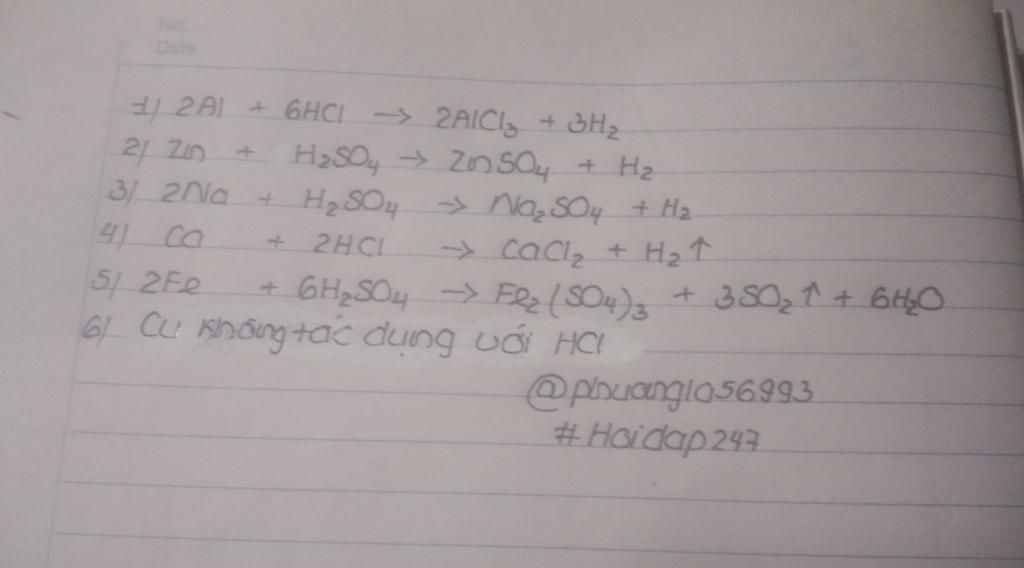 No.
Date
1) 2Al + 6HCl → 2AlCl₃ + 3H₂
2) Zn + H₂SO₄ → ZnSO₄ + H₂
3) 2Na + H₂SO₄ → Na₂SO₄ + H₂
4) Ca + 2HCl → CaCl₂ + H₂↑
5) 2Fe + 6H₂SO₄ → Fe₂(SO₄)₃ + 3SO₂↑ + 6H₂O
6) Cu không tác dụng với HCl
@phuongla56993
#Hoidap247